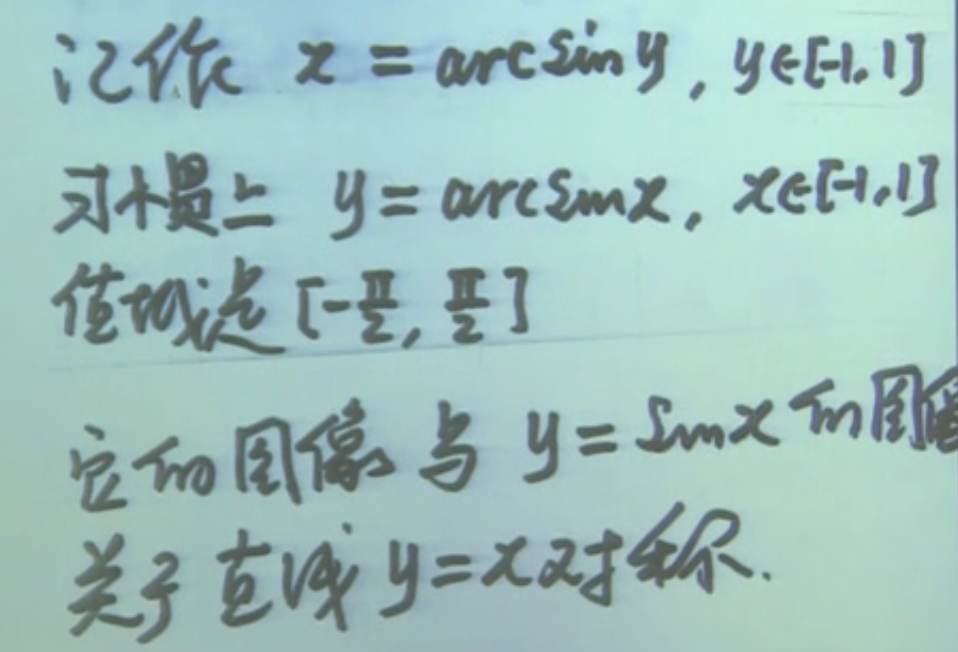 记作 x = arcsin y, y∈[-1,1]
习惯上 y = arcsin x, x∈[-1,1]
值域是 [-π/2, π/2]
它的图像与 y = sin x 的图像
关于直线 y = x 对称.